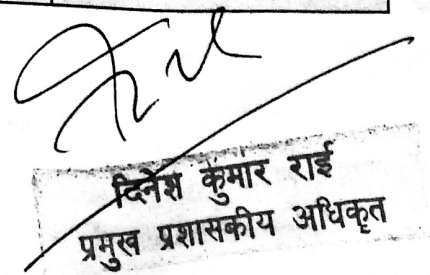 दिनेश कुमार राई
प्रमुख प्रशासकीय अधिकृत